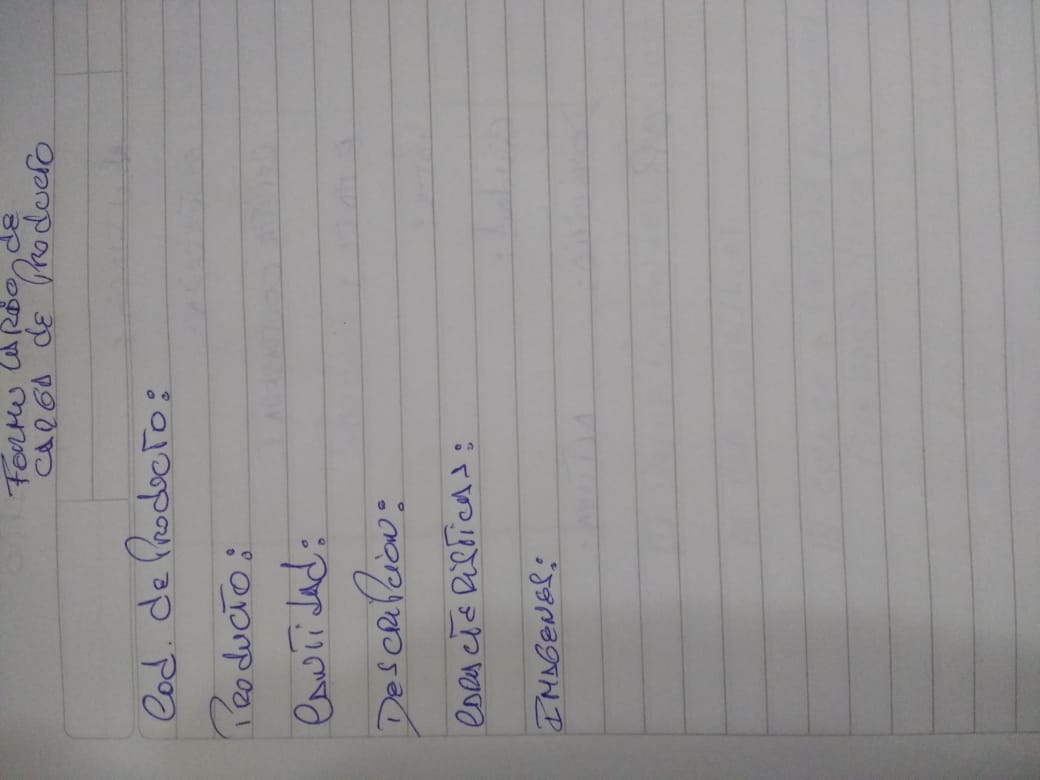 Formulario de
Carga de Producto
Cod. de Producto:
Producto:
Cantidad:
Descripcion:
Caracteristicas:
Imagenes: